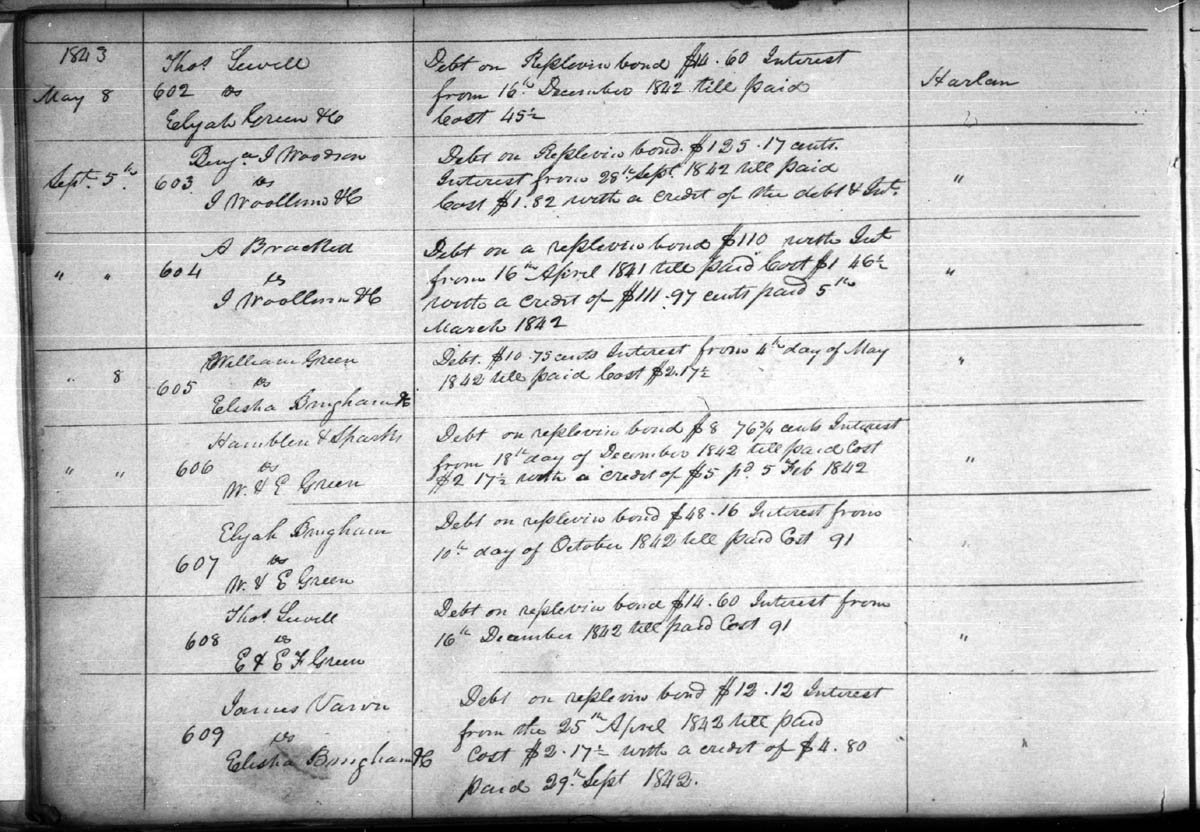 1843
May 8
Thos Sewell
602 vs
Elijah Green &C
Debt on Replevin bond $14.60 Interest
from 16th December 1842 till paid
Cost 45½
Harlan
Sept. 5th
Benja J Woodson
603 vs
J Woollum &C
Debt on Replevin bond. $125.17 cents.
Interest from 28th Sept 1842 till paid
Cost $1.82 with a credit of the debt & Int.
"
" "
A Bracked
604 vs
J Woollum &C
Debt on a replevin bond $110 with Int
from 16th April 1841 till paid Cost $1 46½
with a credit of $111.97 cents paid 5th
March 1842
"
" 8
William Green
605 vs
Elisha Bingham &C
Debt. $10.75 cents Interest from 4th day of May
1842 till paid Cost $2.17½
"
" "
Hamblen & Sparks
606 vs
W. & E Green
Debt on replevin bond $8 76¾ cents Interest
from 18th day of December 1842 till paid Cost
$2 17½ with a credit of $5 pd 5 Feb 1842
"
Elijah Bingham
607 vs
W. & E Green
Debt on replevin bond $48.16 Interest from
10th day of October 1842 till paid Cost 91
"
Thos Sewell
608 vs
E & E F Green
Debt on replevin bond $14.60 Interest from
16th December 1842 till paid Cost 91
"
James
609 vs
Elisha Bingham &C
Debt on replevin bond $12.12 Interest
from the 25th April 1842 till paid
Cost $2.17½ with a credit of $4.80
paid 29th Sept 1842.
"